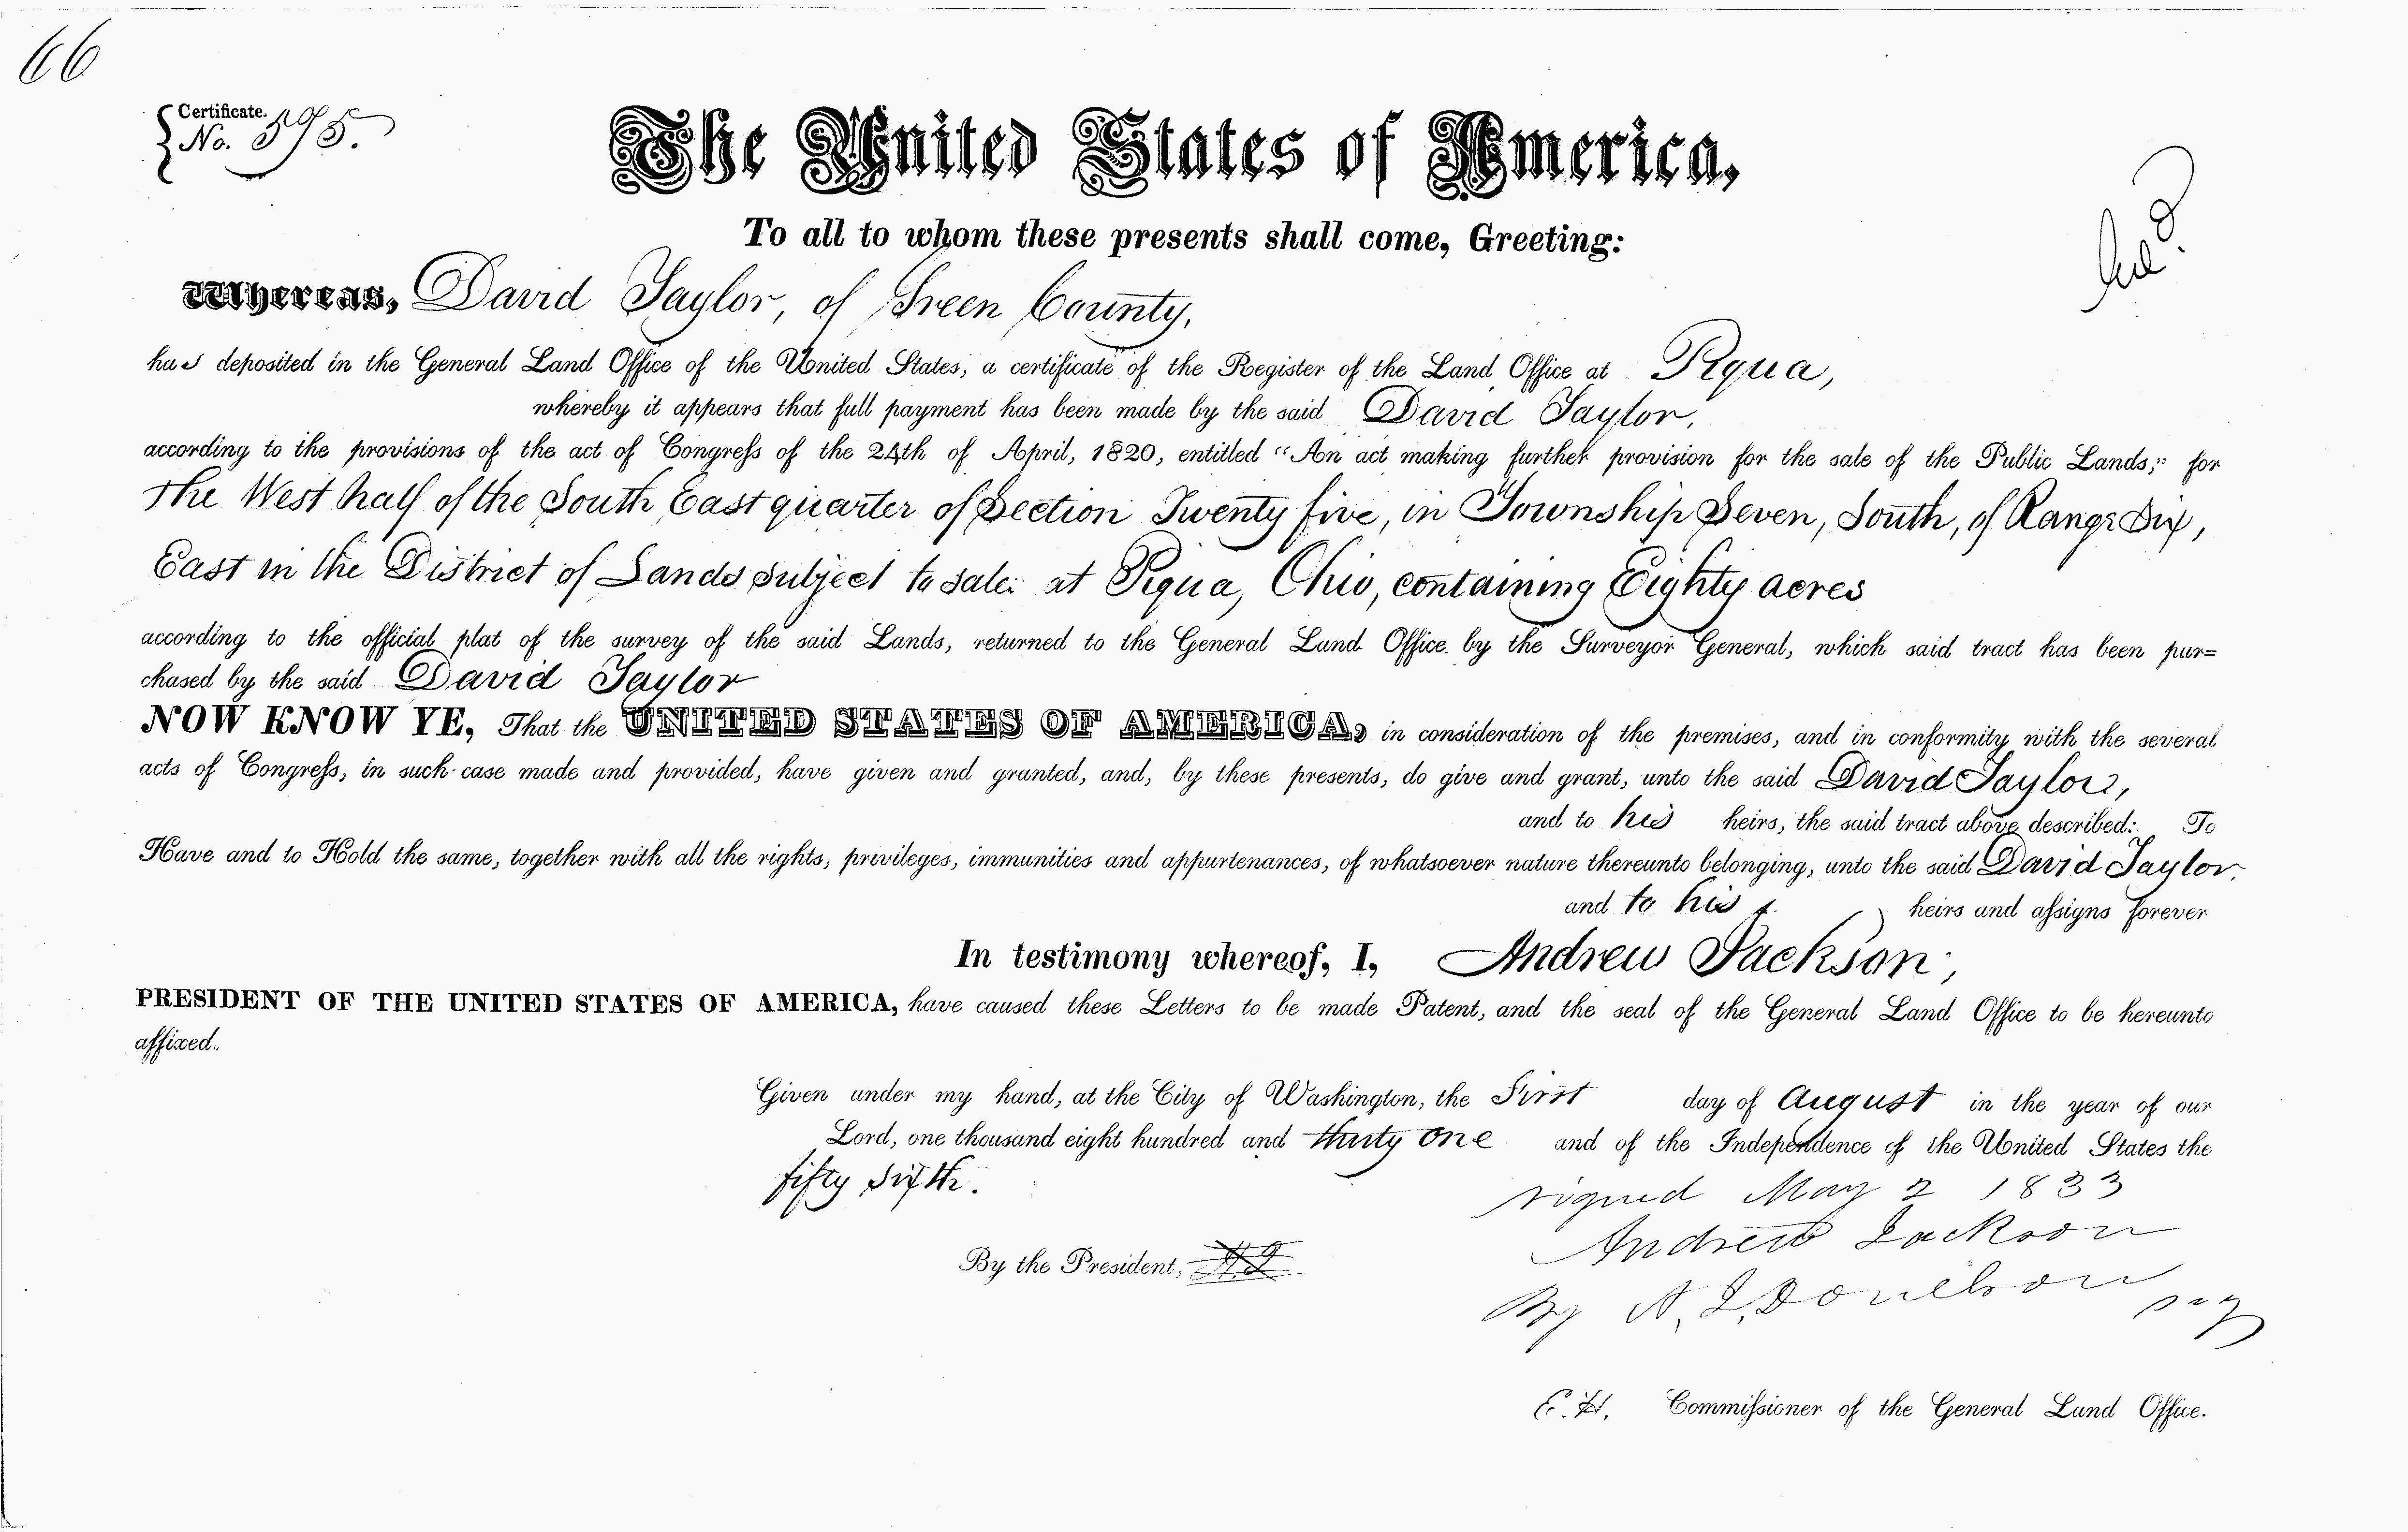 66
Certificate.
No. 595.
The United States of America,
To all to whom these presents shall come, Greeting:
Whereas, David Taylor, of Green County,
has deposited in the General Land Office of the United States, a certificate of the Register of the Land Office at Piqua,
whereby it appears that full payment has been made by the said David Taylor,
according to the provisions of the act of Congress of the 24th of April, 1820, entitled "An act making further provision for the sale of the Public Lands;" for
The West half of the South East quarter of Section Twenty five, in Township Seven, South, of Range Six,
East in the District of Lands subject to sale at Piqua, Ohio, containing Eighty acres
according to the official plat of the survey of the said Lands, returned to the General Land Office by the Surveyor General, which said tract has been pur=
chased by the said David Taylor
NOW KNOW YE, That the UNITED STATES OF AMERICA, in consideration of the premises, and in conformity with the several
acts of Congress, in such case made and provided, have given and granted, and, by these presents, do give and grant, unto the said David Taylor,
and to his heirs, the said tract above described: To
Have and to Hold the same, together with all the rights, privileges, immunities and appurtenances, of whatsoever nature thereunto belonging, unto the said David Taylor,
and to his heirs and assigns forever
In testimony whereof, I, Andrew Jackson,
PRESIDENT OF THE UNITED STATES OF AMERICA, have caused these Letters to be made Patent, and the seal of the General Land Office to be hereunto
affixed.
Given under my hand, at the City of Washington, the First day of August in the year of our
Lord, one thousand eight hundred and thirty one and of the Independence of the United States the
fifty sixth.
signed May 2 1833
Andrew Jackson
By the President,
By A. J. Donelson
E. H. Commissioner of the General Land Office.